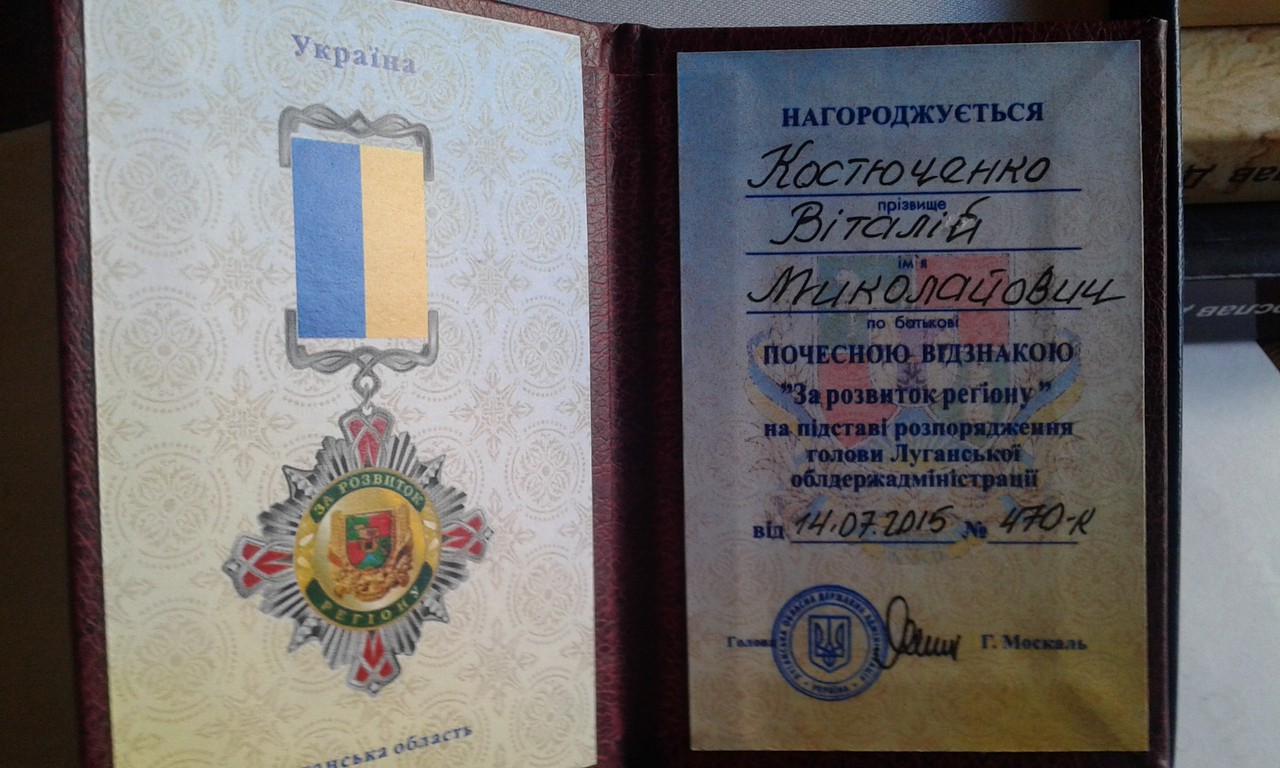 Україна
ЗА РОЗВИТОК
РЕГІОНУ
область
НАГОРОДЖУЄТЬСЯ
Костюченко
прізвище
Віталій
ім'я
Миколайович
по батькові
ПОЧЕСНОЮ ВІДЗНАКОЮ
"За розвиток регіону"
на підставі розпорядження
голови Луганської
облдержадміністрації
від 14.07.2015 № 470-к
Голова Г. Москаль
ЛУГАНСЬКА ОБЛАСНА ДЕРЖАВНА АДМІНІСТРАЦІЯ
УКРАЇНА